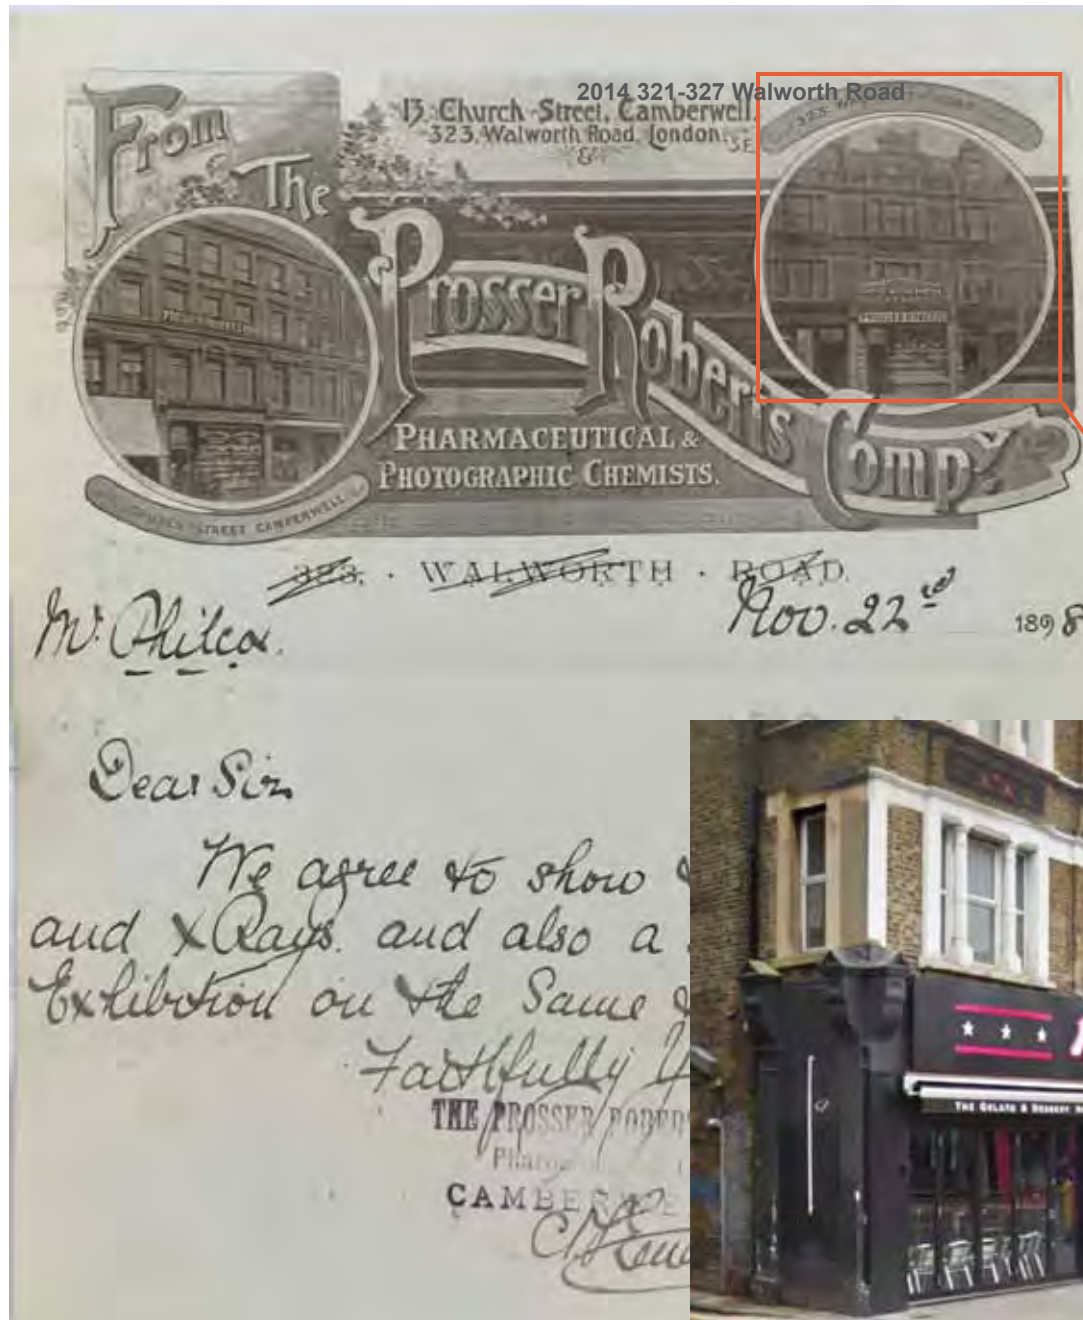 2014 321-327 Walworth Road
From
The
13, Church Street, Camberwell.
323, Walworth Road, London. S.E.
&
Prosser Roberts Compy.
PHARMACEUTICAL &
PHOTOGRAPHIC CHEMISTS.
STREET CAMBERWELL
323, · WALWORTH · ROAD.
Mr. Philcox.
Nov. 22nd 1898
Dear Sir
We agree to show
and X Rays. and also a
Exhibition on the Same
Faithfully
THE PROSSER ROBER
CAMBER
THE GELATO & DESSERT